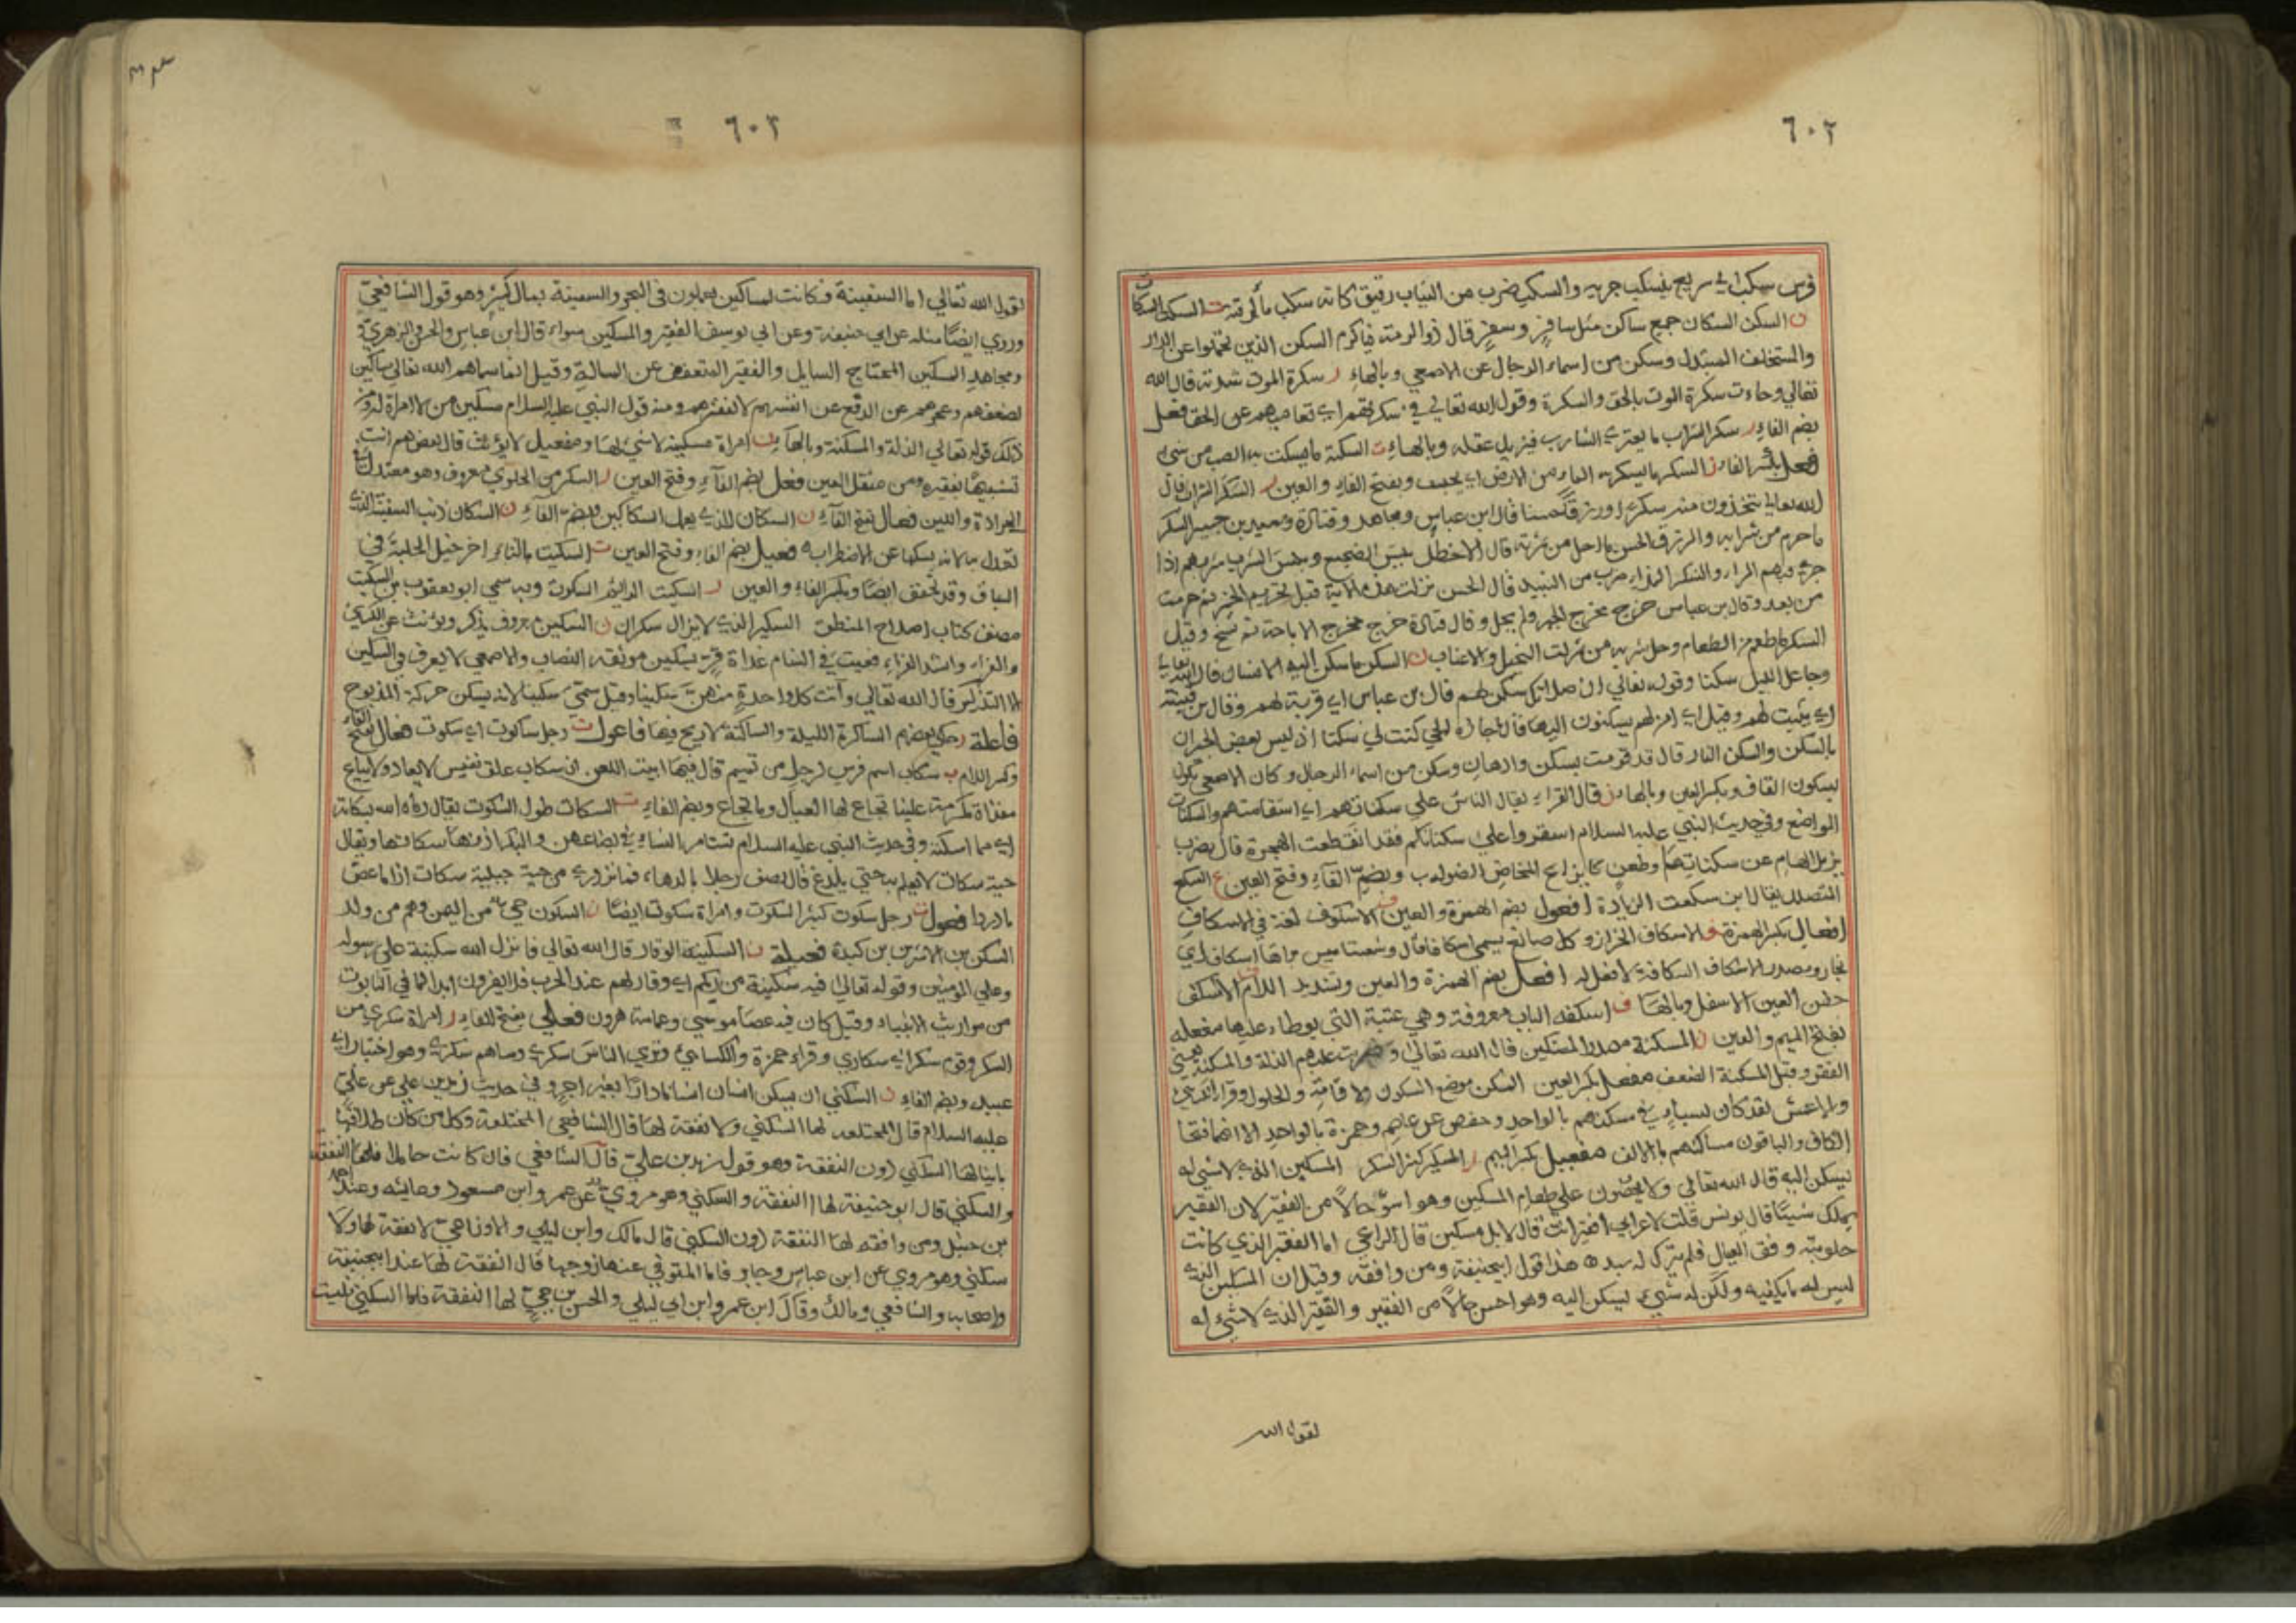 ٦٠٢
فرس سكب اي سريع ينسكب جريه والسكب ضرب من الثياب رقيق كانه سكب ماء لرقته ت السكت السكات
ن السكن السكان جمع ساكن مثل سافر وسفر قال ذو الرمة فياكرم السكن الذين تحملوا عن الدار
والمستخلف المتبدل وسكن من اسماء الرجال عن الاصمعي وبالهاء ر سكرة الموت شدته قال الله
تعالي وجاءت سكرة الموت بالحق والسكرة وقول الله تعالي في سكرتهم اي تعاميهم عن الحق فعل
بضم الفاء ر سكر الشراب ما يعتري الشارب فيزيل عقله وبالهاء ت السكتة ما يسكت به الصبي من شيء
فعل بكسر الفاء ر السكر ما يسكر به الماء من الارض اي يحبس وبفتح الفاء والعين ر السكر الشراب قال
الله تعالي تتخذون منه سكرا ورزقا حسنا قال ابن عباس ومجاهد وقتادة وسعيد بن جبير السكر
ما حرم من شرابه والرزق الحسن ما احل من ثمرته قال الاخطل بيس الضجيع وبيس الشرب شربهم اذا
جري فيهم المزاء والسكر المزاء ضرب من النبيذ قال الحسن نزلت هذه الاية قبل تحريم الخمر ثم حرمت
من بعد وقال بن عباس خرج مخرج الخبر ولم يحل وقال قتادة خرج مخرج الاباحة ثم نسخ وقيل
السكر ما طعم من الطعام وحل شربه من ثمرات النخيل والاعناب ن السكن ما سكن اليه الانسان قال الله تعالي
وجاعل الليل سكنا وقوله تعالي ان صلواتك سكن لهم قال بن عباس اي قربة لهم وقال بن قتيبة
اي تثبيت لهم وقيل اي امن لهم يسكنون اليها قال لجارة لحي كنت لي سكنا اذ ليس بعض الجيران
بالسكن والسكن النار قال قد قومت بسكن وادهان وسكن من اسماء الرجال وكان الاصمعي يقول
بسكون القاف وبكسر العين وبالهاء ن قال الفراء يقال الناس علي سكناتهم اي استقامتهم والسكنات
المواضع وفي حديث النبي عليه السلام استقروا علي سكناتكم فقد انقطعت الهجرة قال بضرب
يزيل الهام عن سكناتها وطعن كايزاغ المخاض الضوارب وبضم الفاء وفتح العين ع السكع
المتضلل يقال ابن سكعت الزيادة افعول بضم الهمزة والعين ف الاسكوف لغة في الاسكاف
افعال بكسر الهمزة ف الاسكاف الخراز وكل صانع يسمي اسكافا قال وشعبتا ميس براها اسكاف اي
نجار ومصدر الاسكاف السكافة لا فعل له افعل بضم الهمزة والعين وتشديد اللام ف الاسكف
جفن العين الاسفل وبالهاء ف اسكفة الباب معروفة وهي عتبة التي يوطاء عليها مفعلة
بفتح الميم والعين ن المسكنة مصدر المسكين قال الله تعالي وضربت عليهم الذلة والمسكنة يعني
الفقر وقيل المسكنة الضعف مفعل بكسر العين المسكن موضع السكون والاقامة والحلول وقرا الكسائي
والاعمش لقد كان لسباء في مسكنهم بالواحد وحفص عن عاصم وحمزة بالواحد الا انهما فتحا
الكاف والباقون مساكنهم بالالف مفعيل بكسر الميم ر المسكير كثير السكر المسكين الذي لا شيء له
يسكن اليه قال الله تعالي ولا يحضون علي طعام المسكين وهو اسوء حالا من الفقير لان الفقير
يملك شيئا قال يونس قلت لاعرابي افقير انت قال لا بل مسكين قال الراعي اما الفقير الذي كانت
حلوبته وفق العيال فلم يترك له سبد هذا قول ابي حنيفة ومن وافقه وقيل ان المسكين الذي
ليس له ما يكفيه ولكن له شيء يسكن اليه وهو احسن حالا من الفقير والفقير الذي لا شيء له
لقول الله
٦٠٣
لقول الله تعالي اما السفينة فكانت لمساكين يعملون في البحر والسفينة بمال كثير وهو قول الشافعي
وروي ايضا مثله عن ابي حنيفة وعن ابي يوسف الفقير والمسكين سواء قال ابن عباس والحسن والزهري
ومجاهد المسكين المحتاج السايل والفقير المتعفف عن المسالة وقيل انما سماهم الله تعالي مساكين
لضعفهم وعجزهم عن الدفع عن انفسهم لا لفقرهم ومنه قول النبي عليه السلام مسكين من لا امراة له ومن
ذلك قوله تعالي الذلة والمسكنة وبالهاء ن امراة مسكينة لا شيء لها ومفعيل لا يؤنث قال بعضهم انت
تشبيها بفقيرة ومن مثقل العين فعل بضم الفاء وفتح العين ر السكر من الحلوي معروف وهو معتدل في
الحرارة واللين فعال بفتح الفاء ن السكان الذي يعمل السكاكين وبضم الفاء ن السكان ذنب السفينة الذي
تعدل به لانه يسكنها عن الاضطراب فعيل بضم الفاء وفتح العين ت السكيت بالتاء اخر خيل الحلبة في
السباق وقد تخفف ايضا وبكسر الفاء والعين ر السكيت الدائم السكوت وبه سمي ابو يعقوب بن السكيت
مصنف كتاب اصلاح المنطق السكير الذي لا يزال سكران ن السكين معروف يذكر ويؤنث عن الكسائي
والفراء وانشد الفراء فعيث في السنام غداة قر بسكين موثقة النصاب والاصمعي لا يعرف في السكين
الا التذكير قال الله تعالي وآتت كل واحدة منهن سكينا وقيل سمي سكينا لانه يسكن حركة المذبوح
فاعلة ر حكي بعضهم الساكرة الليلة والساكنة لا ريح فيها فاعول ت رجل ساكوت اي سكوت فعال بفتح الفاء
وكسر اللام ب سكاب اسم فرس لرجل من تميم قال فيها ابيت اللعن ان سكاب علق نفيس لا يعار ولا يباع
مفداة مكرمة علينا تجاع لها العيال وما تجاع وبضم الفاء ت السكات طول السكوت يقال رماه الله بسكاتة
اي بما اسكته وفي حديث النبي عليه السلام تستامر النساء في ابضاعهن والبكر اذنها سكاتها ويقال
حية سكات لا يعلم به حتي يلدغ قال يصف رجلا بالدهاء فما تزدري من حية جبلية سكات اذا ما عض
ما دردا فعول ت رجل سكوت كثير السكوت وامراة سكوت ايضا ن السكون حي من اليمن وهم من ولد
السكن بن الاشرس بن كندة فعيلة ن السكينة الوقار قال الله تعالي فانزل الله سكينته علي رسوله
وعلي المومنين وقوله تعالي فيه سكينة من ربكم اي وقار لهم عند الحرب فلا يفرون ابدا لما في التابوت
من مواريث الانبياء وقيل كان فيه عصا موسي وعمامة هرون فعلي بفتح الفاء ر امراة سكري من
السكر وقوم سكري اي سكاري وقراء حمزة والكسائي وتري الناس سكري وما هم سكري وهو اختيار ابي
عبيد وبضم الفاء ن السكني ان يسكن انسان انسانا دارا بغير اجر وفي حديث زيد بن علي عن علي
عليه السلام قال المختلعة لها السكني ولا نفقة لها قال الشافعي المختلعة وكل من كان طلاقها
باينا لها السكني دون النفقة وهو قول زيد بن علي قال الشافعي فان كانت حاملا فلها النفقة
والسكني قال ابو حنيفة لها النفقة والسكني وهو مروي عن عمر وابن مسعود وعايشه وعند احمد
بن حنبل ومن وافقه لها النفقة دون السكني قال مالك وابن ليلي والاوزاعي لا نفقة لها ولا
سكني وهو مروي عن ابن عباس وجابر فاما المتوفي عنها زوجها قال النفقة لها عند ابي حنيفة
واصحابه والشافعي ومالك وقال ابن عمر وابن ابي ليلي والحسن بن حي لها النفقة فاما السكني فليست